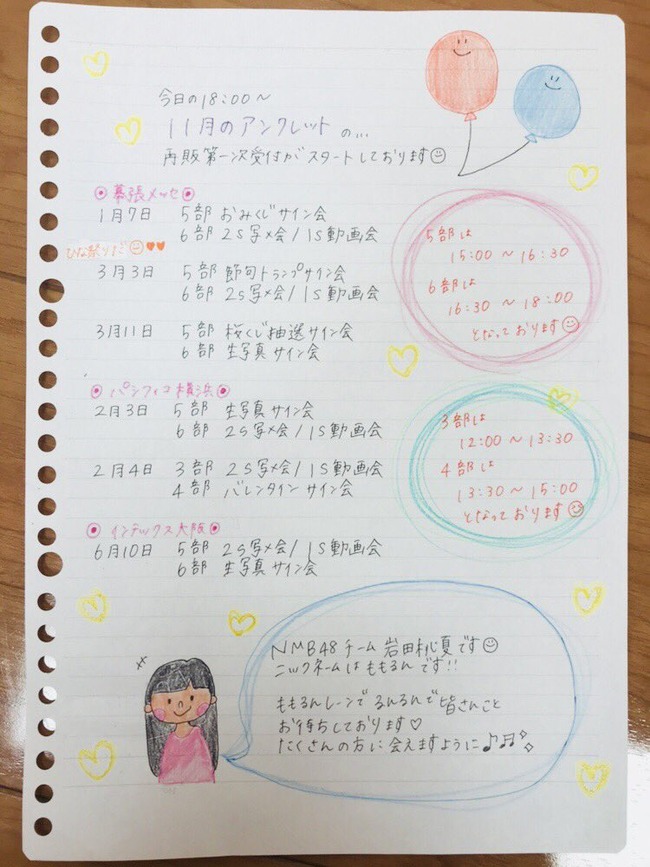 今日の18:00〜
11月のアンクレットの...
再販第一次受付がスタートしております
幕張メッセ
1月7日 5部 おみくじサイン会
6部 2S写メ会/1S動画会
ひな祭りだ
3月3日 5部 節句トランプサイン会
6部 2S写メ会/1S動画会
3月11日 5部 桜くじ抽選サイン会
6部 生写真サイン会
5部は
15:00〜16:30
6部は
16:30〜18:00
となっております
パシフィコ横浜
2月3日 5部 生写真サイン会
6部 2S写メ会/1S動画会
2月4日 3部 2S写メ会/1S動画会
4部 バレンタインサイン会
3部は
12:00〜13:30
4部は
13:30〜15:00
となっております
インテックス大阪
6月10日 5部 2S写メ会/1S動画会
6部 生写真サイン会
NMB48チーム岩田桃夏です
ニックネームはももるんです!!
ももるんレーンでるんるんで皆さんこと
お待ちしております♡
たくさんの方に会えますように♪♬